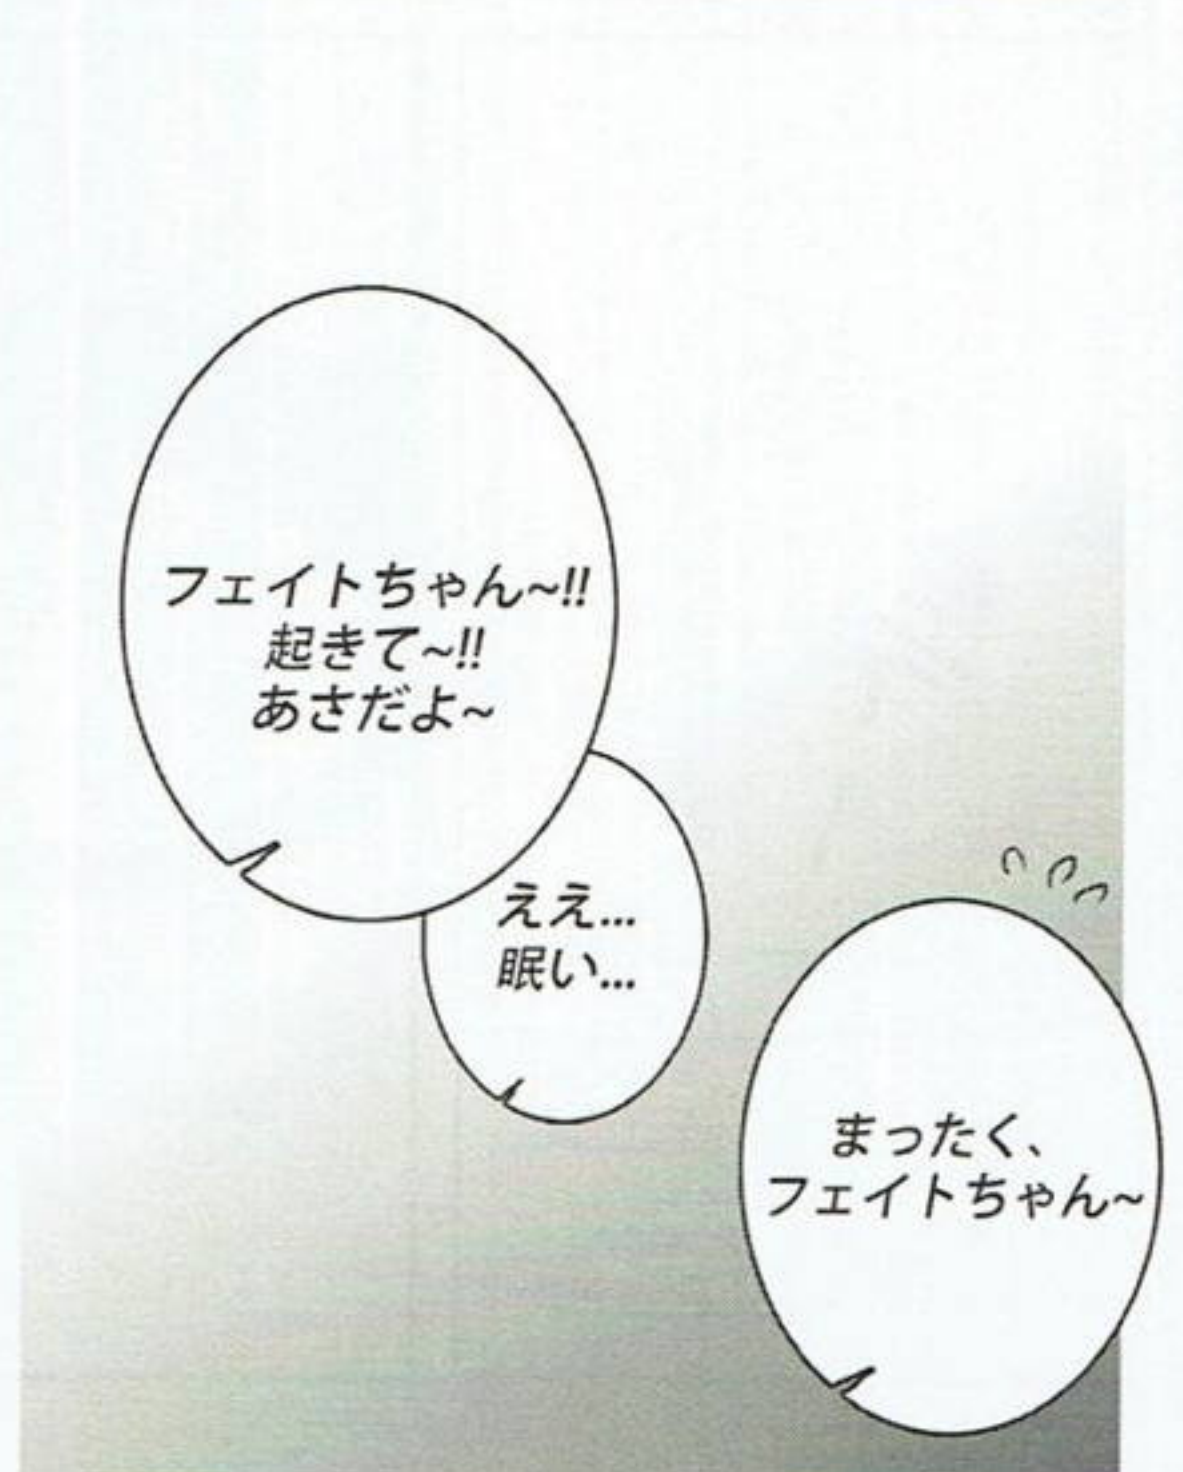 フェイトちゃん~!!
起きて~!!
あさだよ~
ええ...
眠い...
まったく、
フェイトちゃん~